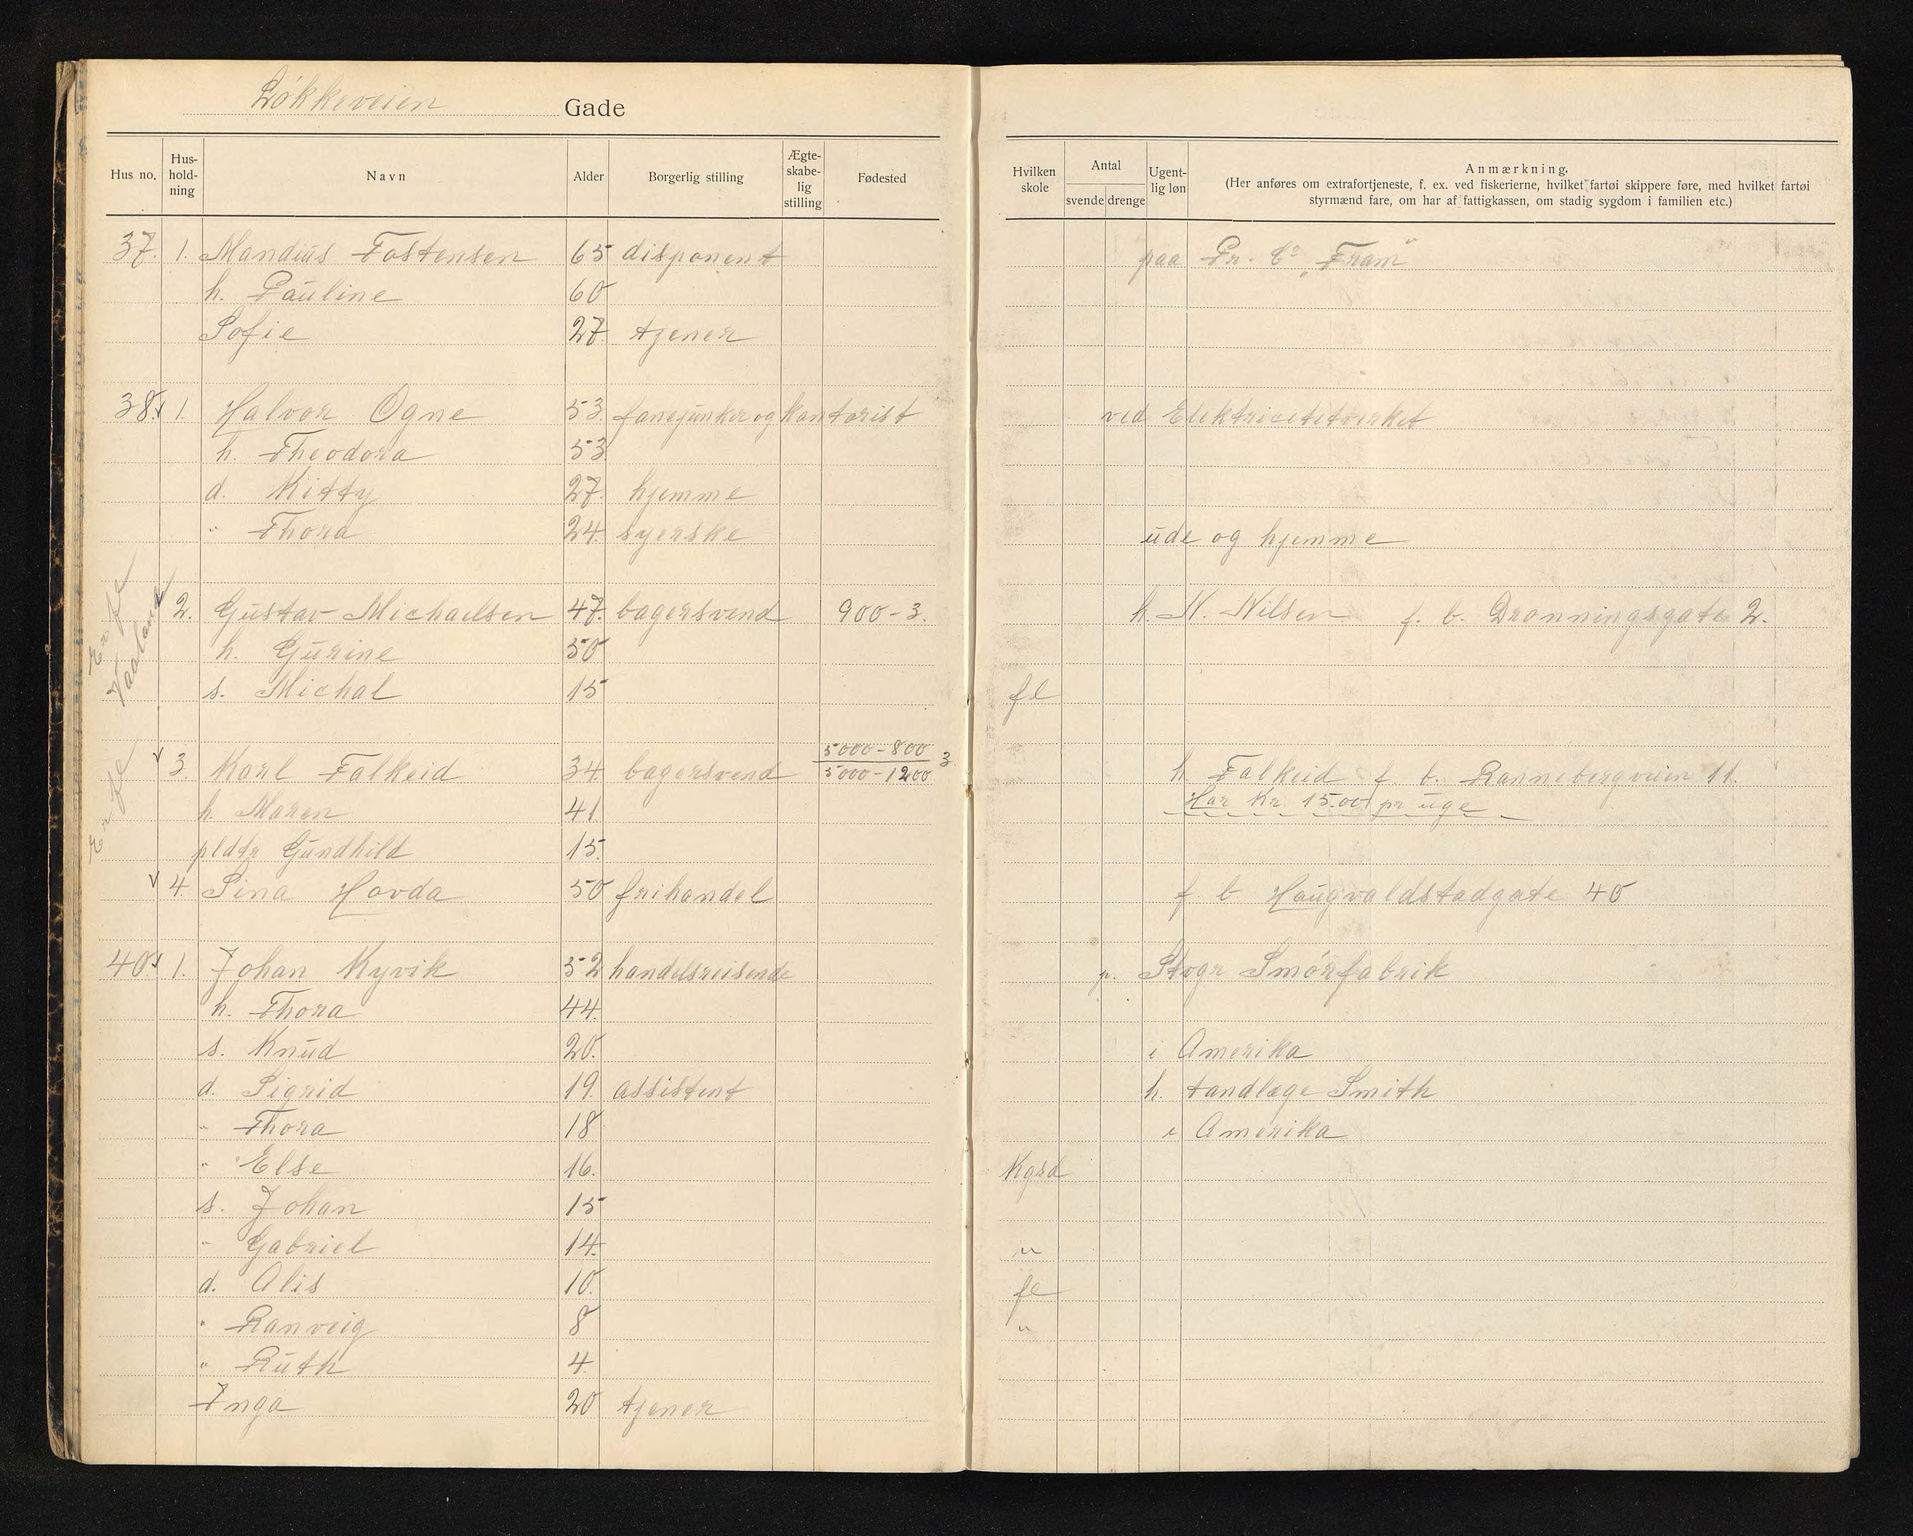 Løkkeveien Gade
Hus no. Hus-hold-ning Navn Alder Borgerlig stilling Ægte-skabe-lig stilling Fødested Hvilken skole Antal svende drenge Ugent-lig løn Anmærkning.
(Her anføres om extrafortjeneste, f. ex. ved fiskerierne, hvilket fartøi skippere føre, med hvilket fartøi
styrmænd fare, om har af fattigkassen, om stadig sygdom i familien etc.)
37. 1. Mandius Tostensen 65 disponent paa Pr. Co "Fram"
h. Pauline 60
Sofie 27. tjener
38. 1. Halvor Ogne 53. fanejunker og kontorist ved Elektricetetverket
h. Theodora 53
d. Kitty 27. hjemme
" Thora 24 syerske ude og hjemme
Er fl
Vaaland
2. Gustav Michaelsen 47. bagersvend 900-3. h. N. Nilsen f. b. Dronningsgate 2.
h. Gurine 50
s. Michal 15 fl
Er fl
3. Karl Falkeid 34 bagersvend 5000-800 5000-1200 3 h Falkeid f b. Rannebergveien 11.
Har Kr 15.00 pr uge
h. Maren 41
pldtr Gundhild 15.
4. Sina Hovda 50 frihandel f b Haugvaldstadgate 40
40 1. Johan Kyvik 52 handelsreisende p. Stvgr Smørfabrik
h. Thora 44.
s. Knud 20. i Amerika
d. Sigrid 19. assistent h. tandlæge Smith
" Thora 18 i Amerika
" Else 16. Kgsd
s. Johan 15
" Gabriel 14. "
d. Alis 10. fl
" Ranveig 8 "
" Ruth 4
Inga 20 tjener